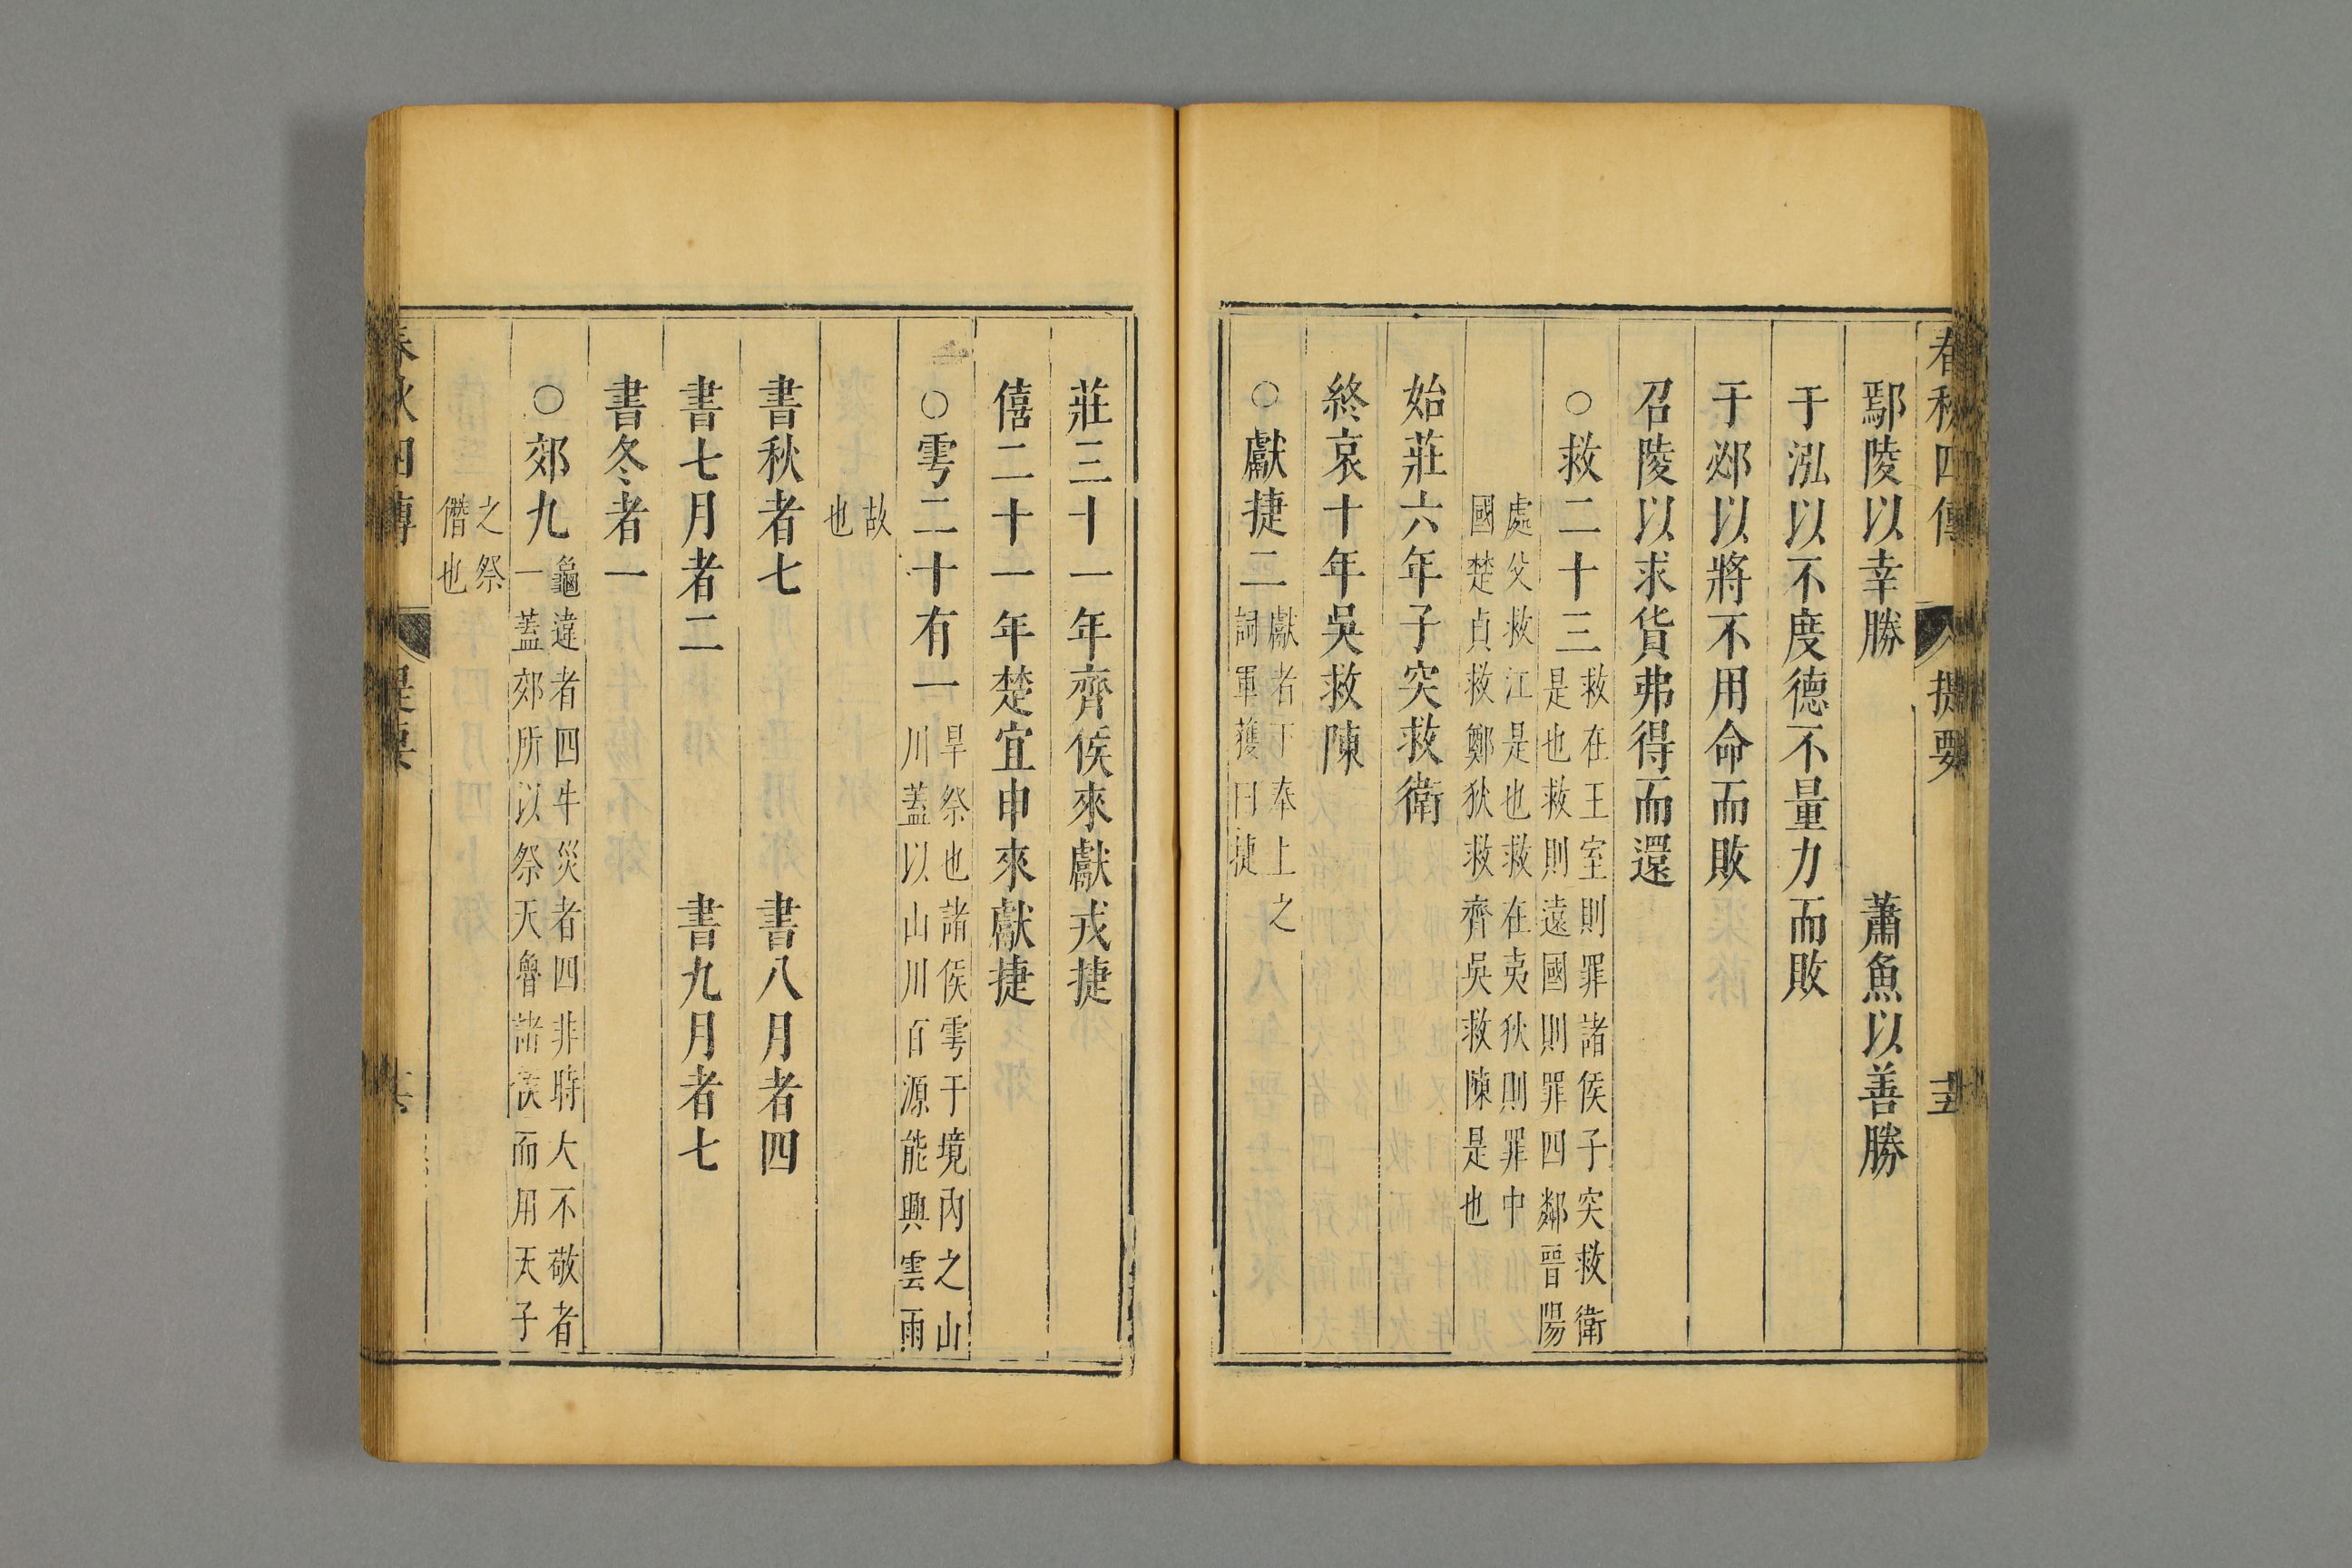 春秋四傳 提要
鄢陵以幸勝 蕭魚以善勝
于泓以不度德不量力而敗
于邲以將不用命而敗
召陵以求貨弗得而還
○救二十三 救在王室則罪諸侯子突救衛
是也救則遠國則罪四鄰晉陽
處父救江是也救在夷狄則罪中
國楚貞救鄭狄救齊吳救陳是也
始莊六年子突救衛
終哀十年吳救陳
○獻捷二 獻者下奉上之
詞軍獲曰捷
莊三十一年齊侯來獻戎捷
僖二十一年楚宜申來獻捷
○雩二十有一 旱祭也諸侯雩于境內之山
川蓋以山川百源能興雲雨
故
也
書秋者七 書八月者四
書七月者二 書九月者七
書冬者一
○郊九 龜違者四牛災者四非時大不敬者
一蓋郊所以祭天魯諸侯而用天子
之祭
僭也
春秋四傳 提要